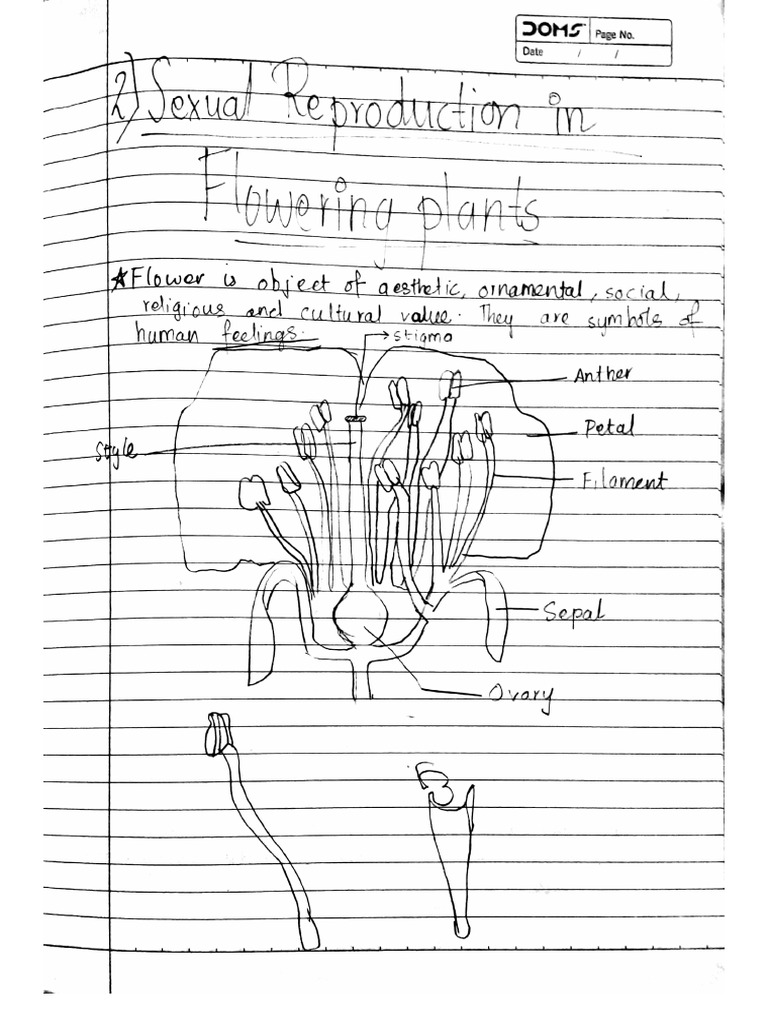 DOMS Page No.
Date / /
2) Sexual Reproduction in
Flowering plants
*Flower is object of aesthetic, ornamental, social,
religious and cultural value. They are symbols of
human feelings.
stigma
Anther
Petal
Style
Filament
Sepal
Ovary